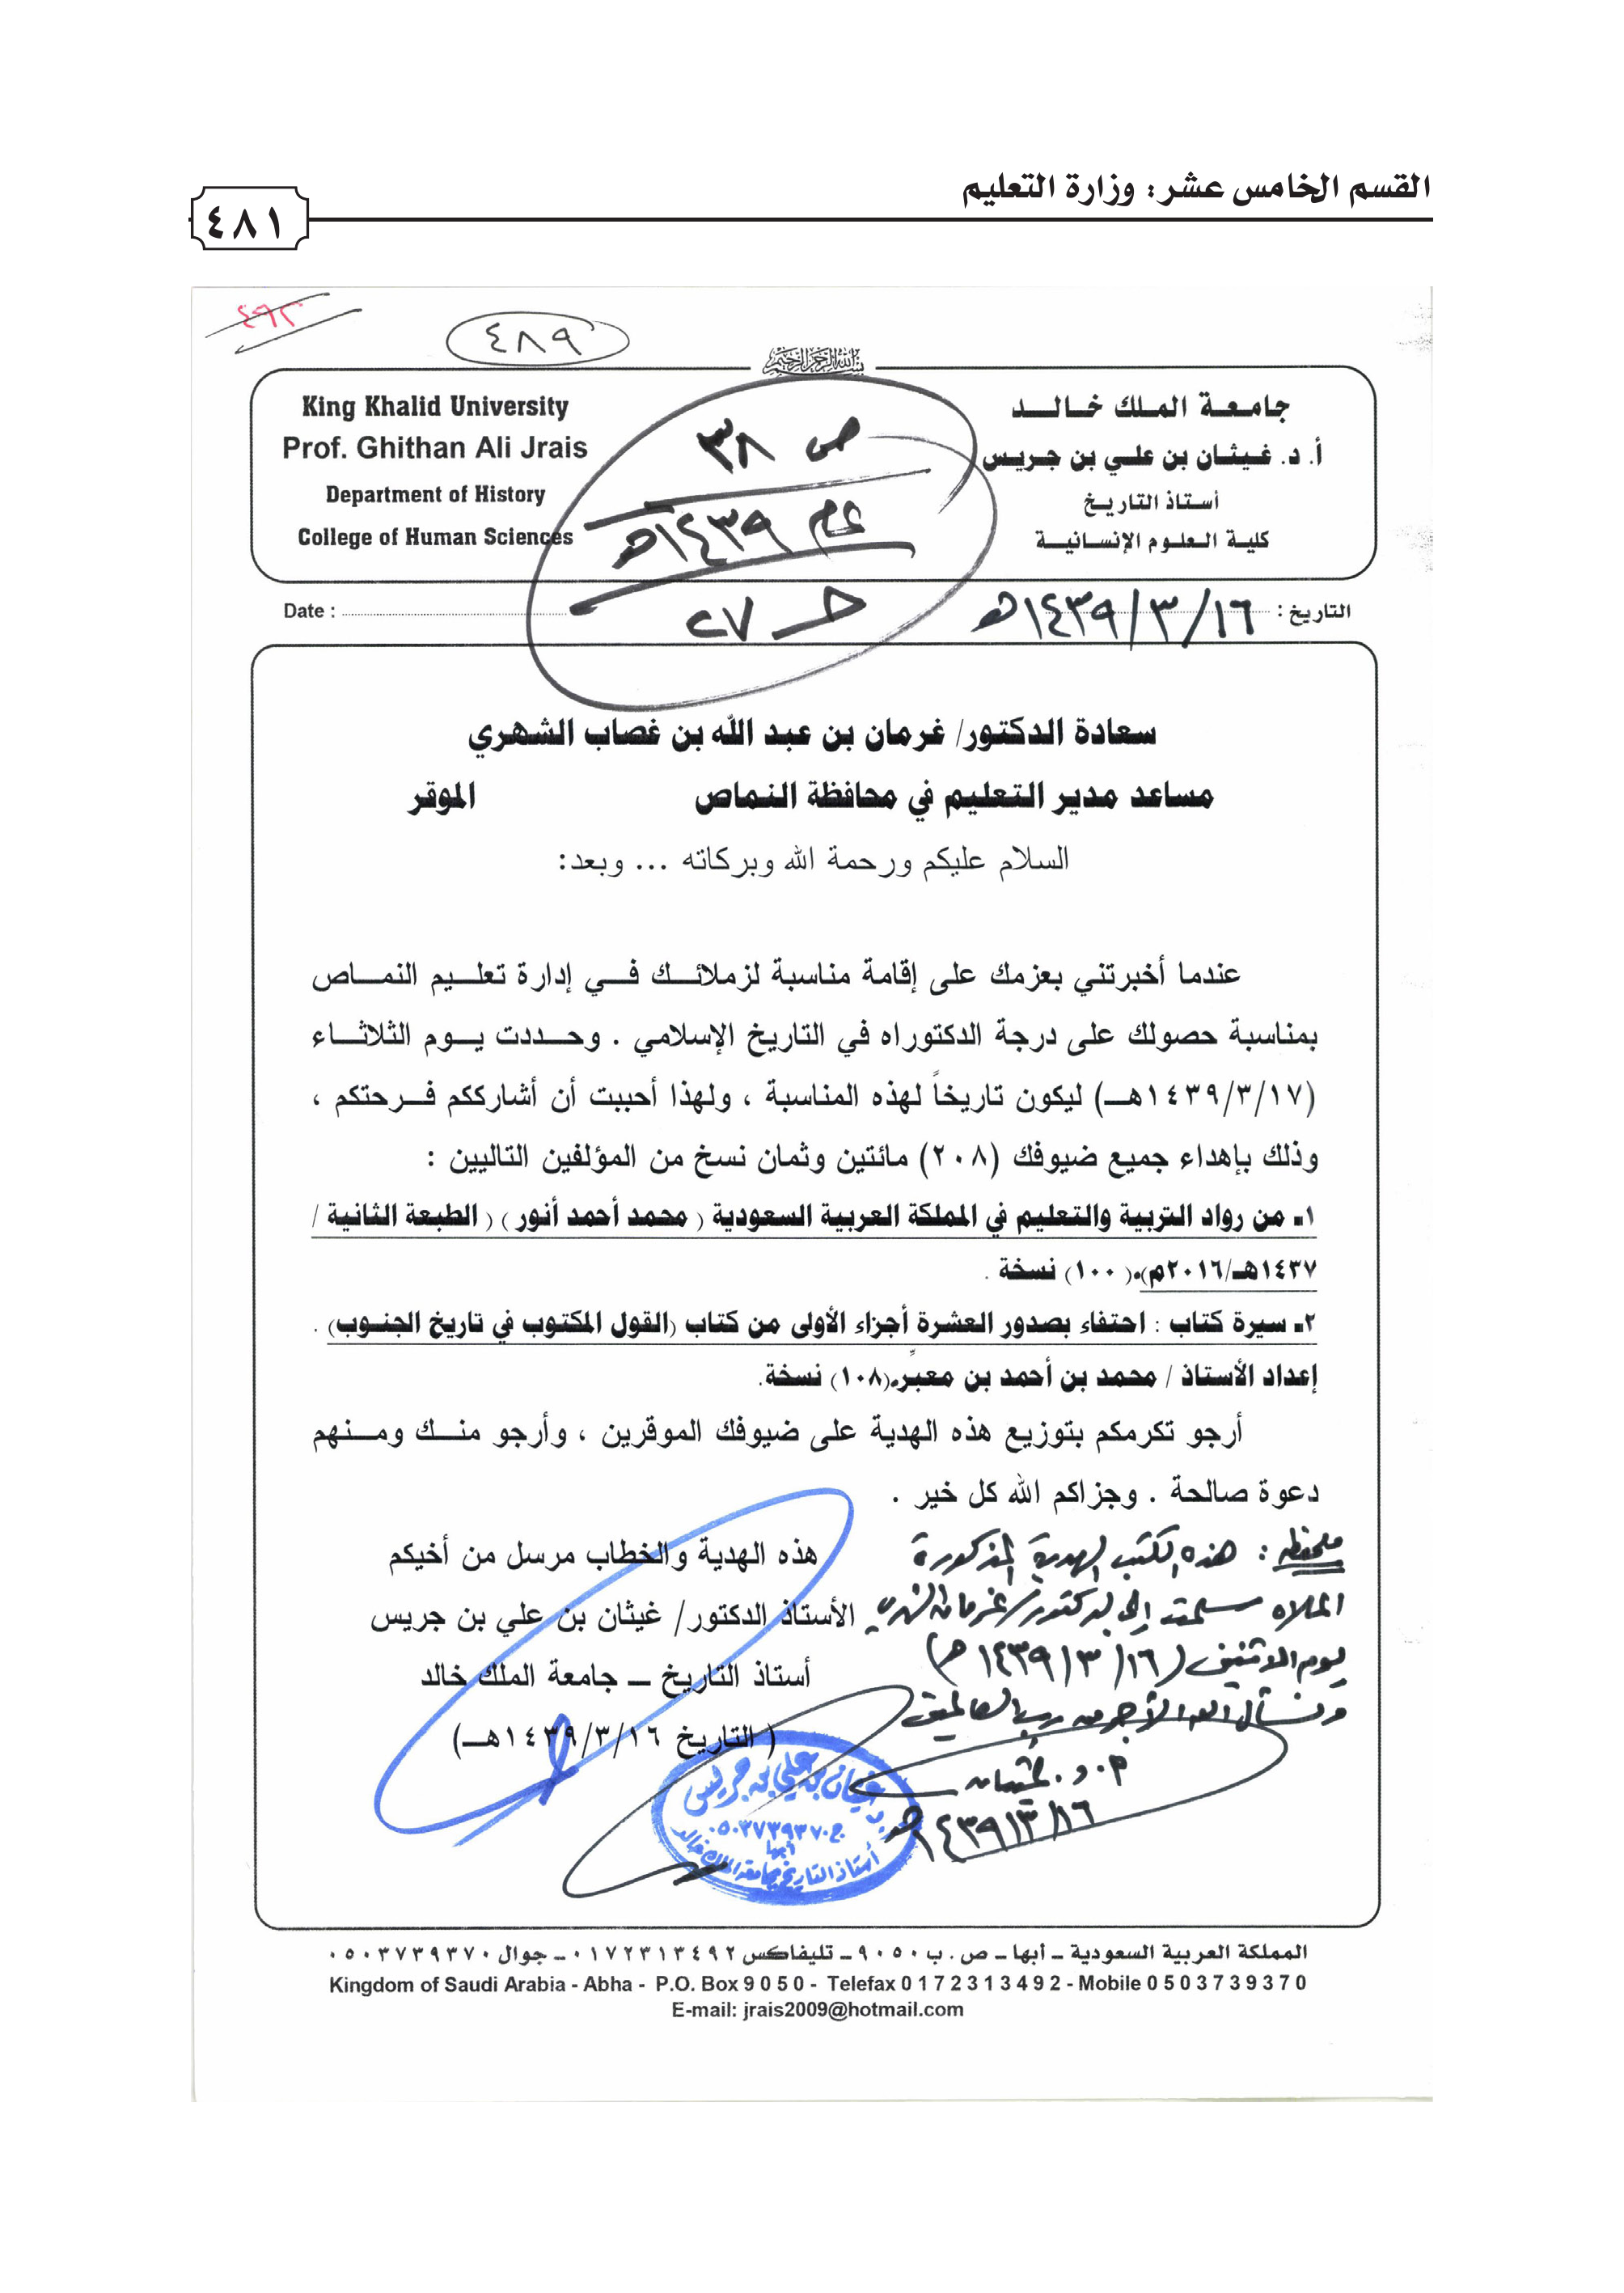 القسم الخامس عشر: وزارة التعليم
٤٨١
٤٩٢
٤٨٩
بسم الله الرحمن الرحيم
جامعة الملك خالد
أ. د. غيثان بن علي بن جريس
أستاذ التاريخ
كلية العلوم الإنسانية
King Khalid University
Prof. Ghithan Ali Jrais
Department of History
College of Human Sciences
ص ٣٨
عام ١٤٣٩هـ
حـ ٢٧
التاريخ : ١٤٣٩/٣/١٦هـ
Date :
سعادة الدكتور/ غرمان بن عبد الله بن غصاب الشهري
مساعد مدير التعليم في محافظة النماص الموقر
السلام عليكم ورحمة الله وبركاته ... وبعد:
عندما أخبرتني بعزمك على إقامة مناسبة لزملائك في إدارة تعليم النماص
بمناسبة حصولك على درجة الدكتوراه في التاريخ الإسلامي . وحددت يوم الثلاثاء
(١٤٣٩/٣/١٧هـ) ليكون تاريخاً لهذه المناسبة ، ولهذا أحببت أن أشارككم فرحتكم ،
وذلك بإهداء جميع ضيوفك (٢٠٨) مائتين وثمان نسخ من المؤلفين التاليين :
١ـ من رواد التربية والتعليم في المملكة العربية السعودية ( محمد أحمد أنور ) ( الطبعة الثانية /
١٤٣٧هـ/٢٠١٦م).( ١٠٠) نسخة .
٢ـ سيرة كتاب : احتفاء بصدور العشرة أجزاء الأولى من كتاب (القول المكتوب في تاريخ الجنوب) .
إعداد الأستاذ / محمد بن أحمد بن معبّر.(١٠٨) نسخة.
أرجو تكرمكم بتوزيع هذه الهدية على ضيوفك الموقرين ، وأرجو منك ومنهم
دعوة صالحة . وجزاكم الله كل خير .
هذه الهدية والخطاب مرسل من أخيكم
الأستاذ الدكتور/ غيثان بن علي بن جريس
أستاذ التاريخ ــ جامعة الملك خالد
( التاريخ ١٤٣٩/٣/١٦هـ)
ملحوظة : هذه الكتب الهدية المذكورة
أعلاه سلمت إلى الدكتور/ غرمان الشهري
يوم الاثنين (١٤٣٩/٣/١٦هـ)
ونسأل الله الأجر من رب العالمين
أ. د. غيثان
١٤٣٩/٣/١٦هـ
د. غيثان بن علي بن جريس
ج. ٠٥٠٣٧٣٩٣٧٠
أبها
أستاذ التاريخ بجامعة الملك خالد
المملكة العربية السعودية ــ أبها ــ ص . ب ٩٠٥٠ ــ تليفاكس ٠١٧٢٣١٣٤٩٢ ــ جوال ٠٥٠٣٧٣٩٣٧٠
Kingdom of Saudi Arabia - Abha - P.O. Box 9 0 5 0 - Telefax 0 1 7 2 3 1 3 4 9 2 - Mobile 0 5 0 3 7 3 9 3 7 0
E-mail: jrais2009@hotmail.com